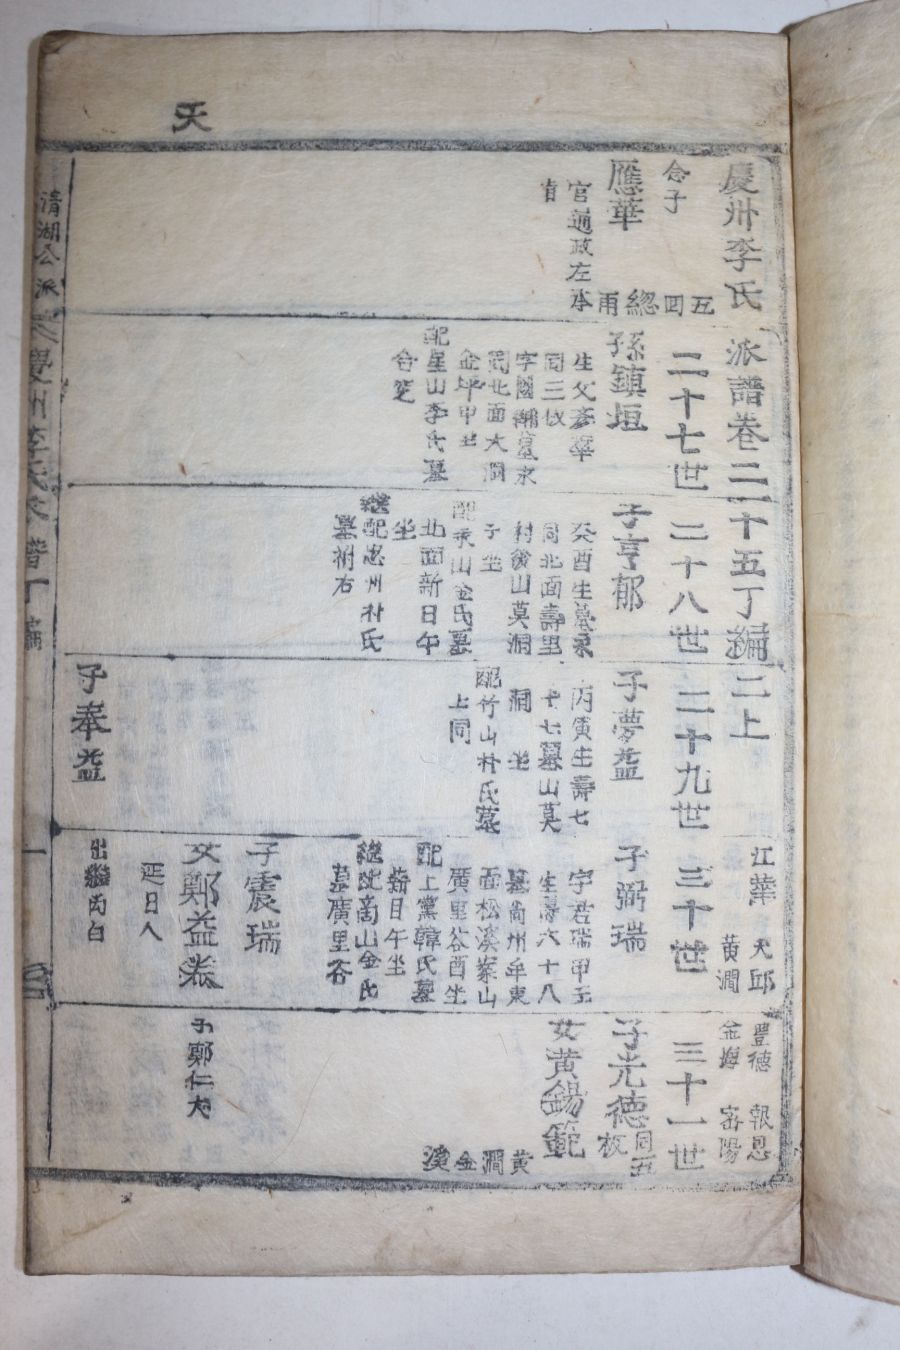 天
慶州李氏派譜卷二十五丁編二上
江華 大邱 豊德 報恩
黃澗 金海 密陽
念子
五四
二十七世
二十八世
二十九世
三十世
三十一世
應華
總甫
官通政左本
孫鎮垣
同三板
字國潮墓永
同北面大洞
金坪甲坐
配星山李氏墓
合窆
子亨郁
癸酉生墓永
同北面壽里
村後山莫洞
子坐
金氏墓
北面新日午
坐
継配忠州朴氏
墓祔右
子夢益
丙寅生壽七
十七墓山莫
洞 坐
配竹山朴氏墓
上同
子奉益
子弼瑞
字君瑞甲子
生壽六十八
墓尙州牟東
面松溪案山
廣里谷酉坐
配上黨韓氏墓
新日午坐
継配高山金氏
墓廣里谷
子震瑞
女鄭益泰
延日人
出継丙白
子光德
同五板
女黃錫範
黃澗金溪
子鄭仁大
清湖公派
慶州李氏派譜丁編
一